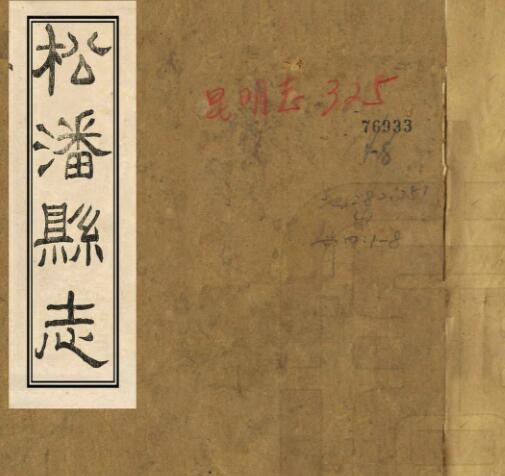 松潘縣志
昆明志 325
76933
1-8
1-8